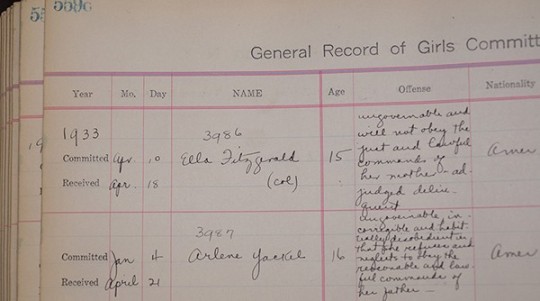 5596
General Record of Girls Committ
Year Mo. Day NAME Age Offense Nationality
1933 3986
Committed Apr. 10 Ella Fitzgerald 15 Amer
Received Apr. 18 (col)
ungovernable and
will not obey the
just and lawful
commands of
her mother - ad-
judged delin-
quent
3987
Committed Jan 4 Arlene 16 Amer
Received April 21
ungovernable, in-
corrigible and habit-
ually disobedient in
that she refuses and
neglects to obey the
reasonable and law-
ful commands of
her father -